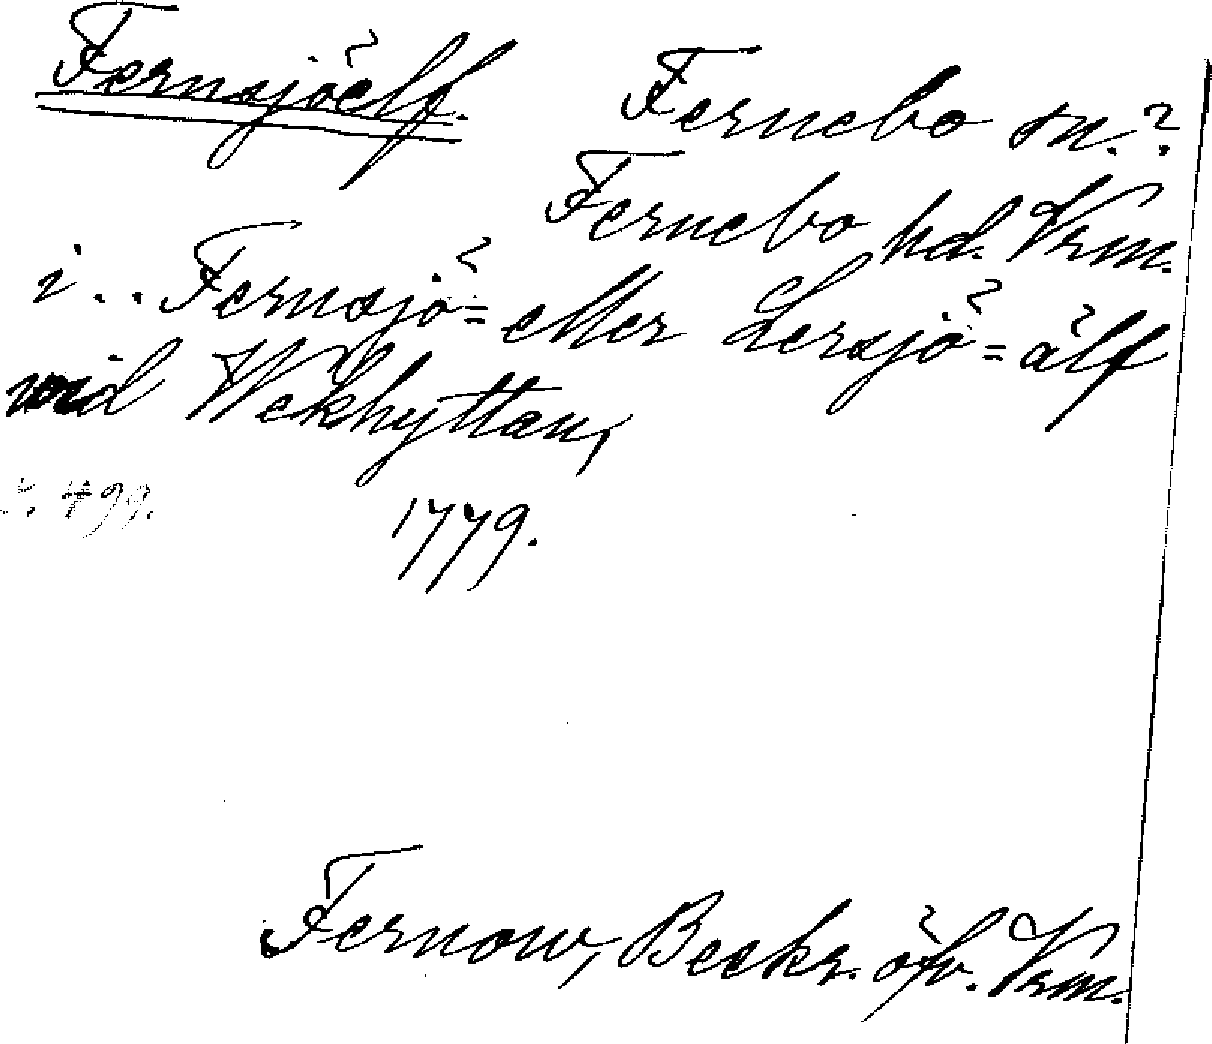 Fernsjöelf. Fernebo sn.?
Fernebo hd. Vrm.
i... Fernsjö= eller Lersjö=älf
vid Wekhyttan,
s. 499. 1779.
Fernow, Beskr. öfv. Vrm.